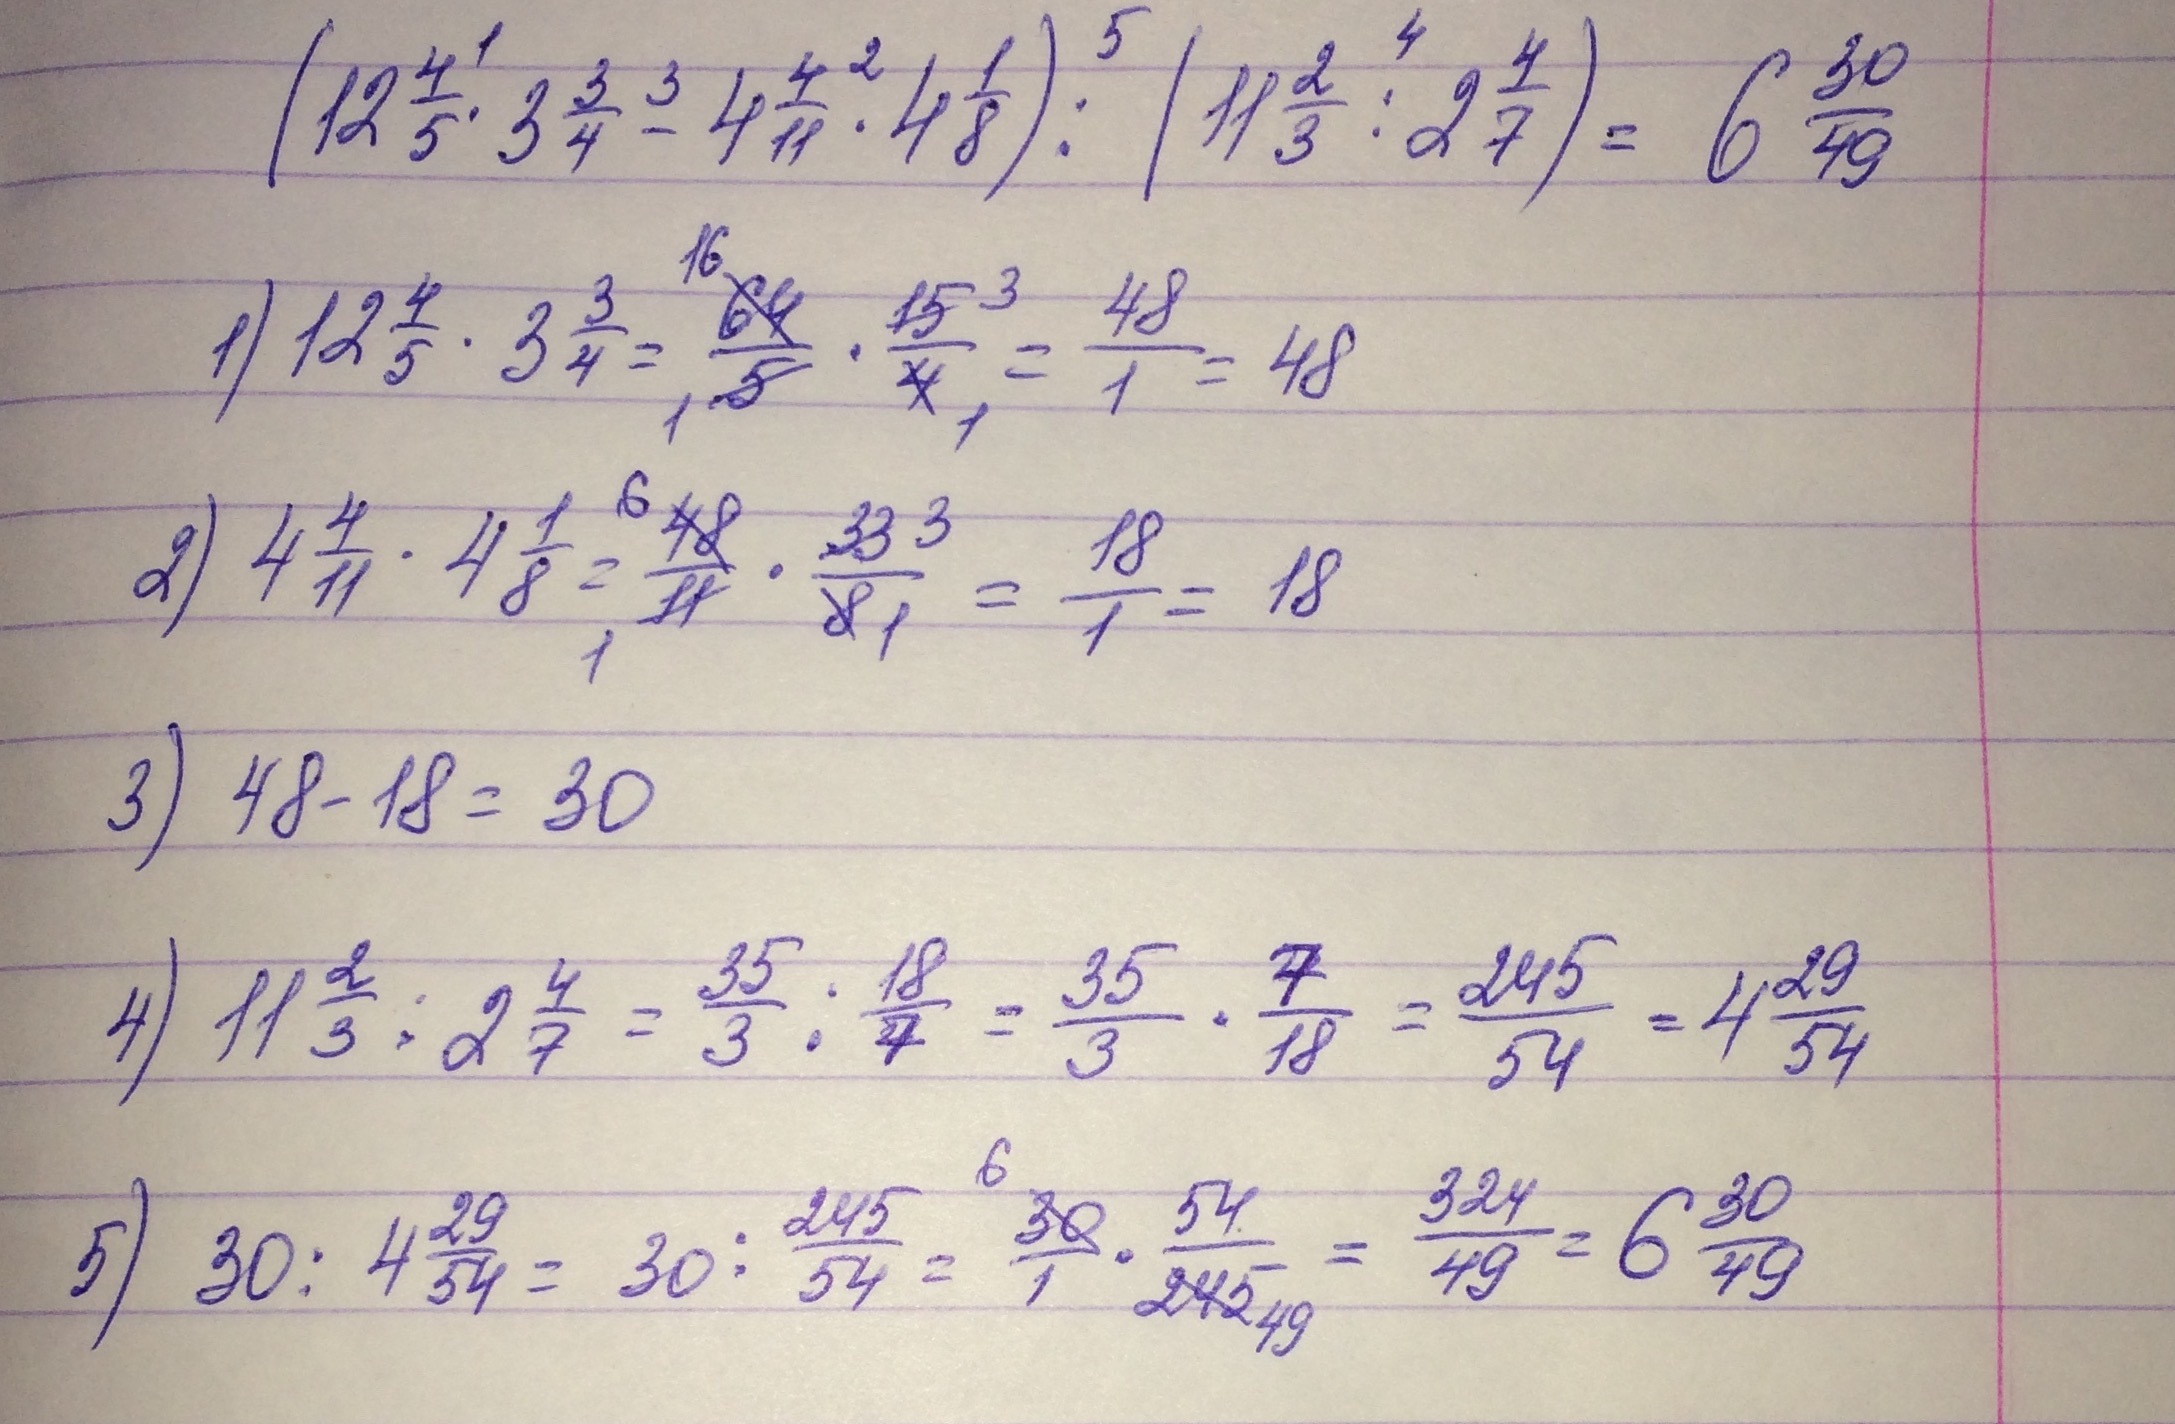 (12 4/5 · 3 3/4 - 4 4/11 · 4 1/8) : (11 2/3 : 2 4/7) = 6 30/49
1) 12 4/5 · 3 3/4 = 64/5 · 15/4 = 48/1 = 48
2) 4 4/11 · 4 1/8 = 48/11 · 33/8 = 18/1 = 18
3) 48 - 18 = 30
4) 11 2/3 : 2 4/7 = 35/3 : 18/7 = 35/3 · 7/18 = 245/54 = 4 29/54
5) 30 : 4 29/54 = 30 : 245/54 = 30/1 · 54/245 = 324/49 = 6 30/49